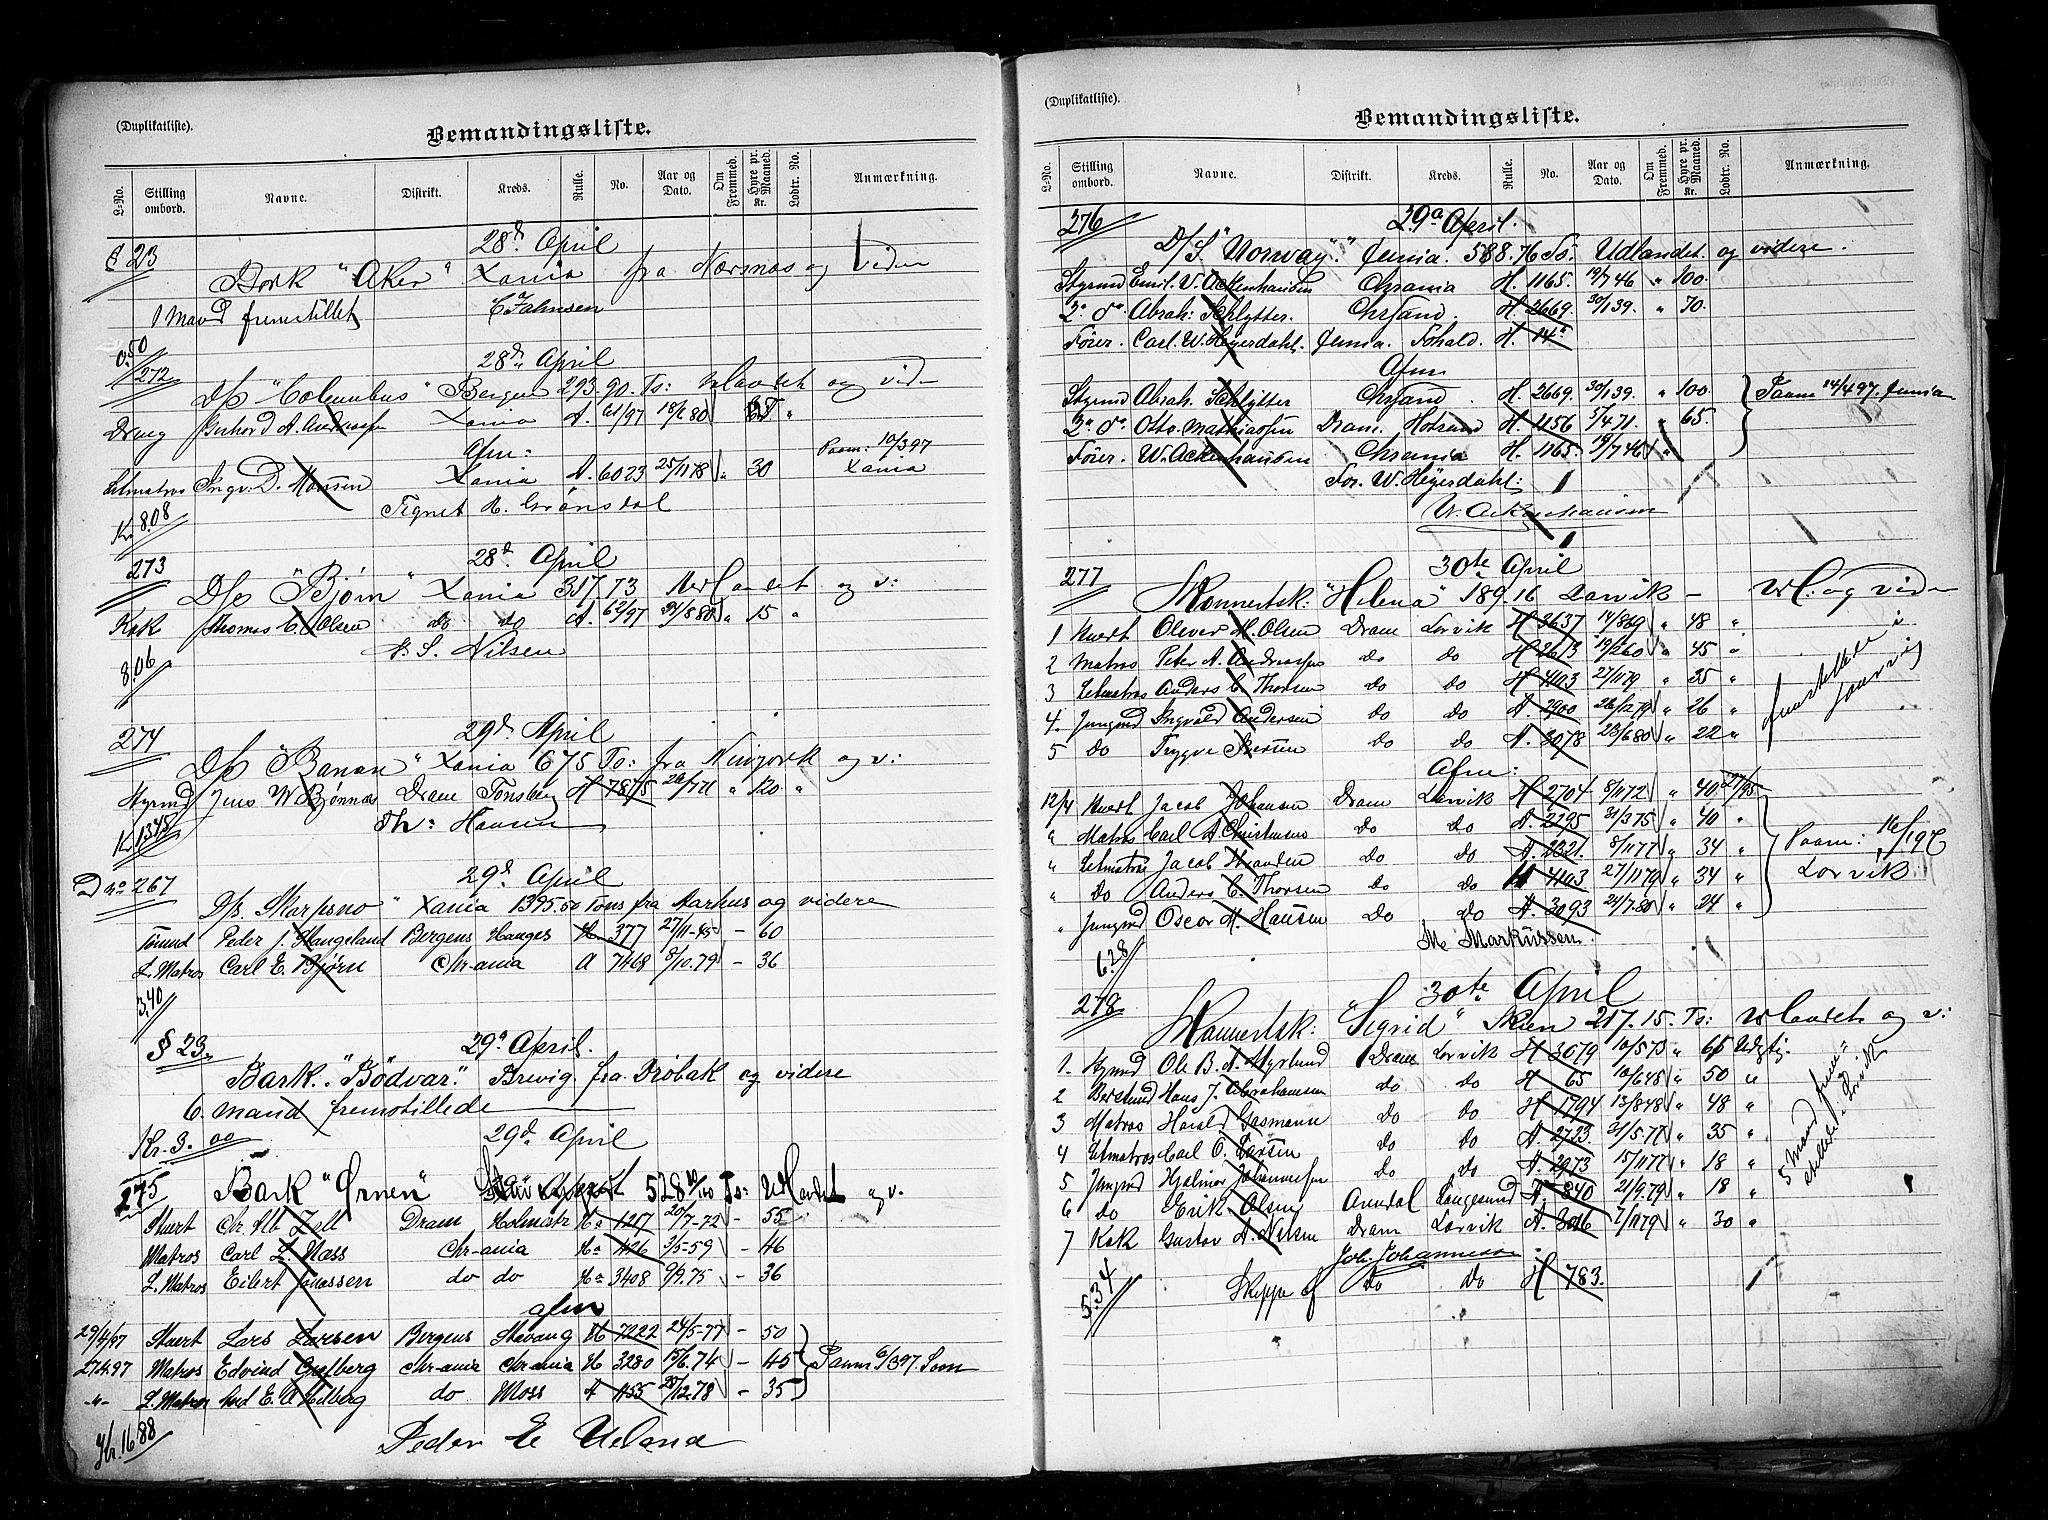 (Duplikatliste).
Bemandingsliste.
L-No. Stilling ombord. Navne. Distrikt. Kreds. Rulle. No. Aar og Dato. Om Fremmed. Hyre pr. Maaned. Kr. Lodtr. No. Anmærkning.
§ 23 28d April
Bark "Aker" Xania fra Næsnæs og viden
1 Mand fremstillet
0.50
272 28d April
D/S "Columbus" Bergen 293.90 Ts: Udlandet og vid
Dreng A. Andreasen Xania A. 61/97 18/2 80 "
Afm: Paam: 10/3 97
Letmatros Ingv. D. Hansen Xania A. 6023 25/11 78 " 30 Xania
Tegnet H. Grønsdal
Kr 8.08
273 28d April
D/S "Bjørn" Xania 317.73 Udlandet og v:
Kok Thomas C. Olsen do do A. 62/97 " 15 "
S. Nilsen
8.06
274 29d April
D/S "Banan" Xania 675 To: fra Newyork og v:
Styrmd Jens W. Bjønnæs Dram Tønsberg H 7875 " 120 "
Th: Hansen
Kr 13.45
D no 267 29d April
D/s. Skarpsno" Xania 1395.50 Tons fra Aarhus og videre
Tømmd Peder J. Haugeland Bergens Hauges H. 377 27/11-45 - 60
L. Matros Carl E. Bjørn Chr-ania A 7468 8/10.79 - 36
3.40
§ 23. 29d April.
Bark. "Bödvar." Brevig. fra Dröbak og videre
6. mand fremstillede
Kr. 3.00 29d April
275 Bark "Ørnen" 528 Ts: Udlandet og v.
Stuert Chr. Alb. Zell Dram Holmestr Ha 1217 20/7-72 - 55
Matros Carl L. Næss Chr-ania Ha 426 3/5-59 - 46
L. Matros Eilert Jonassen do do Ha 3408 9/9.75 - 36
afm
29/4/97 Stuert Lars Larsen Bergens Stavang H 7222 24/5-77 - 50
27.4.97 Matros Edvind Grefberg Chr-ania Chr-ania H 3280 15/6.74 - 45 Paam 6/3 97. Som
-"- L. Matros E. A. Hedberg do Moss A 1155 28/12.78 - 35
Kr. 16.88 Peder E Ueland
(Duplikatliste).
Bemandingsliste.
L-No. Stilling ombord. Navne. Distrikt. Kreds. Rulle. No. Aar og Dato. Om Fremmed. Hyre pr. Maaned. Kr. Lodtr. No. Anmærkning.
276 29d April.
D/S "Norway". 588.76 To. Udlandet og videre.
Styrmd Emil. W. Ackenhausen Chrania H. 1165. 19/7 46 " 100.
2. do Abrah: Schlytter. Chrsand. H. 2669. 30/1 39. " 70.
Fører. Carl. W. Heyerdahl. H. 14
Afm
Styrmd Abrah. Schlytter Chrsand. H. 2669. 30/1 39. " 100. Paam 14/4 97.
2. do Otto. Mathiassen Dram. H. 1156 5/4 71. " 65.
Fører. W. Ackenhausen Chrania H. 1165. 19/7 46 "
For. W. Heyerdahl:
W. Ackenhausen
277 30te April
Skonnertsk: "Helena" 189.16 Larvik - Udl: og viden
1 Stuert Olever M. Olsen Dram Larvik H 3637 14/8 69 " 48 "
2 Matros Peter A. Andreassen do do H 2613 19/2 60 " 45 "
3 Letmatros Anders C. Thorsen do do H 4103 27/11 79 " 35 "
4. Jungmd Ingvald Andersen do do A. 2900 26/12 79 " 26 "
5 do Trygve Iversen do do A. 3078 23/6 80 " 22 "
Afm:
12/4 Stuert Jacob Johansen Dram Larvik H 2704 8/11 72 " 40
" Matros Carl A. Christensen do do A. 2295 31/3 75 " 40 "
" Letmatros Jacob do do A. 2321. 8/11 77 " 34 " Paam: 16/1 97
" do Anders C. Thorsen do do H 4103 27/11 79 " 34 " Larvik
" Jungmd Oscar M. Hansen do do A. 3093 21/7.80 " 24 "
M. Markussen.
6.28
278 30te April
Skonnertsk: "Sigrid" Skien 217.15. Ts: Udlandet og v:
1. Styrmd Ole B. A. Myrlund Dram Larvik H 3079 10/5 73 " 65
2 Hans J. Abrahamsen do do H 65 10/6 48 " 50 "
3 Matros Harald Gasmann do do H 1794 13/8 48 " 48 "
4 Letmatros Carl O. Larsen do do A. 2723. 31/5-77 " 35 "
5 Jungmd Hjalmar Johannesen do do A. 2973 15/11 77 " 18 "
6 do Erik Olsen Arendal Langesund A. 840 21/9.79 " 18 "
7 Kok Gustav A. Nilsen Dram Larvik A. 3016 7/11 79 " 30 "
Joh. Johannessen
5.34 Skipper J do do H 783.